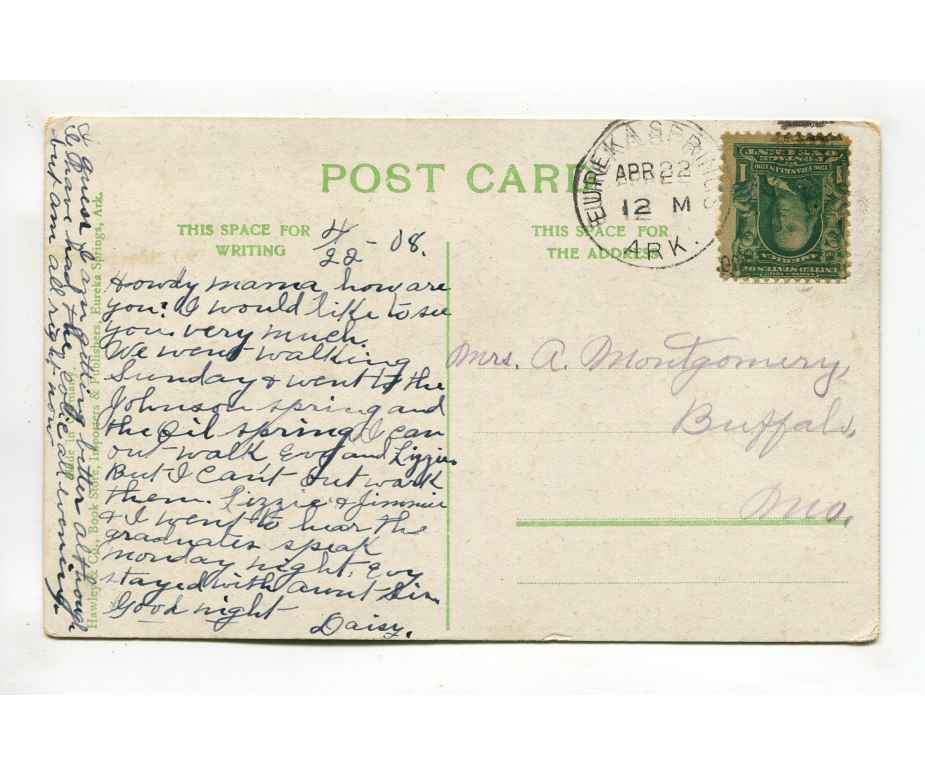 POST CARD
THIS SPACE FOR
WRITING
THIS SPACE FOR
THE ADDRESS
EUREKA SPRINGS
APR 22
12 M
ARK.
1
1
4/22 - 08.
Howdy mama, how are
you? I would like to see
you very much.
We went walking
Sunday & went to the
Johnson spring and
the Oil spring I can
out walk Eve and Lizzie
But I can't out work
them. Lizzie & Jimmie
& I went to hear the
graduates speak
monday night.
stayed with aunt
Good night
Daisy.
I guess I am feeling better although
I have had the colic all evening.
but am all right now
Hawley & Co., Book Store, Importers & Publishers, Eureka Springs, Ark.
Made in Germany
Mrs. A. Montgomery,
Buffalo,
Mo.